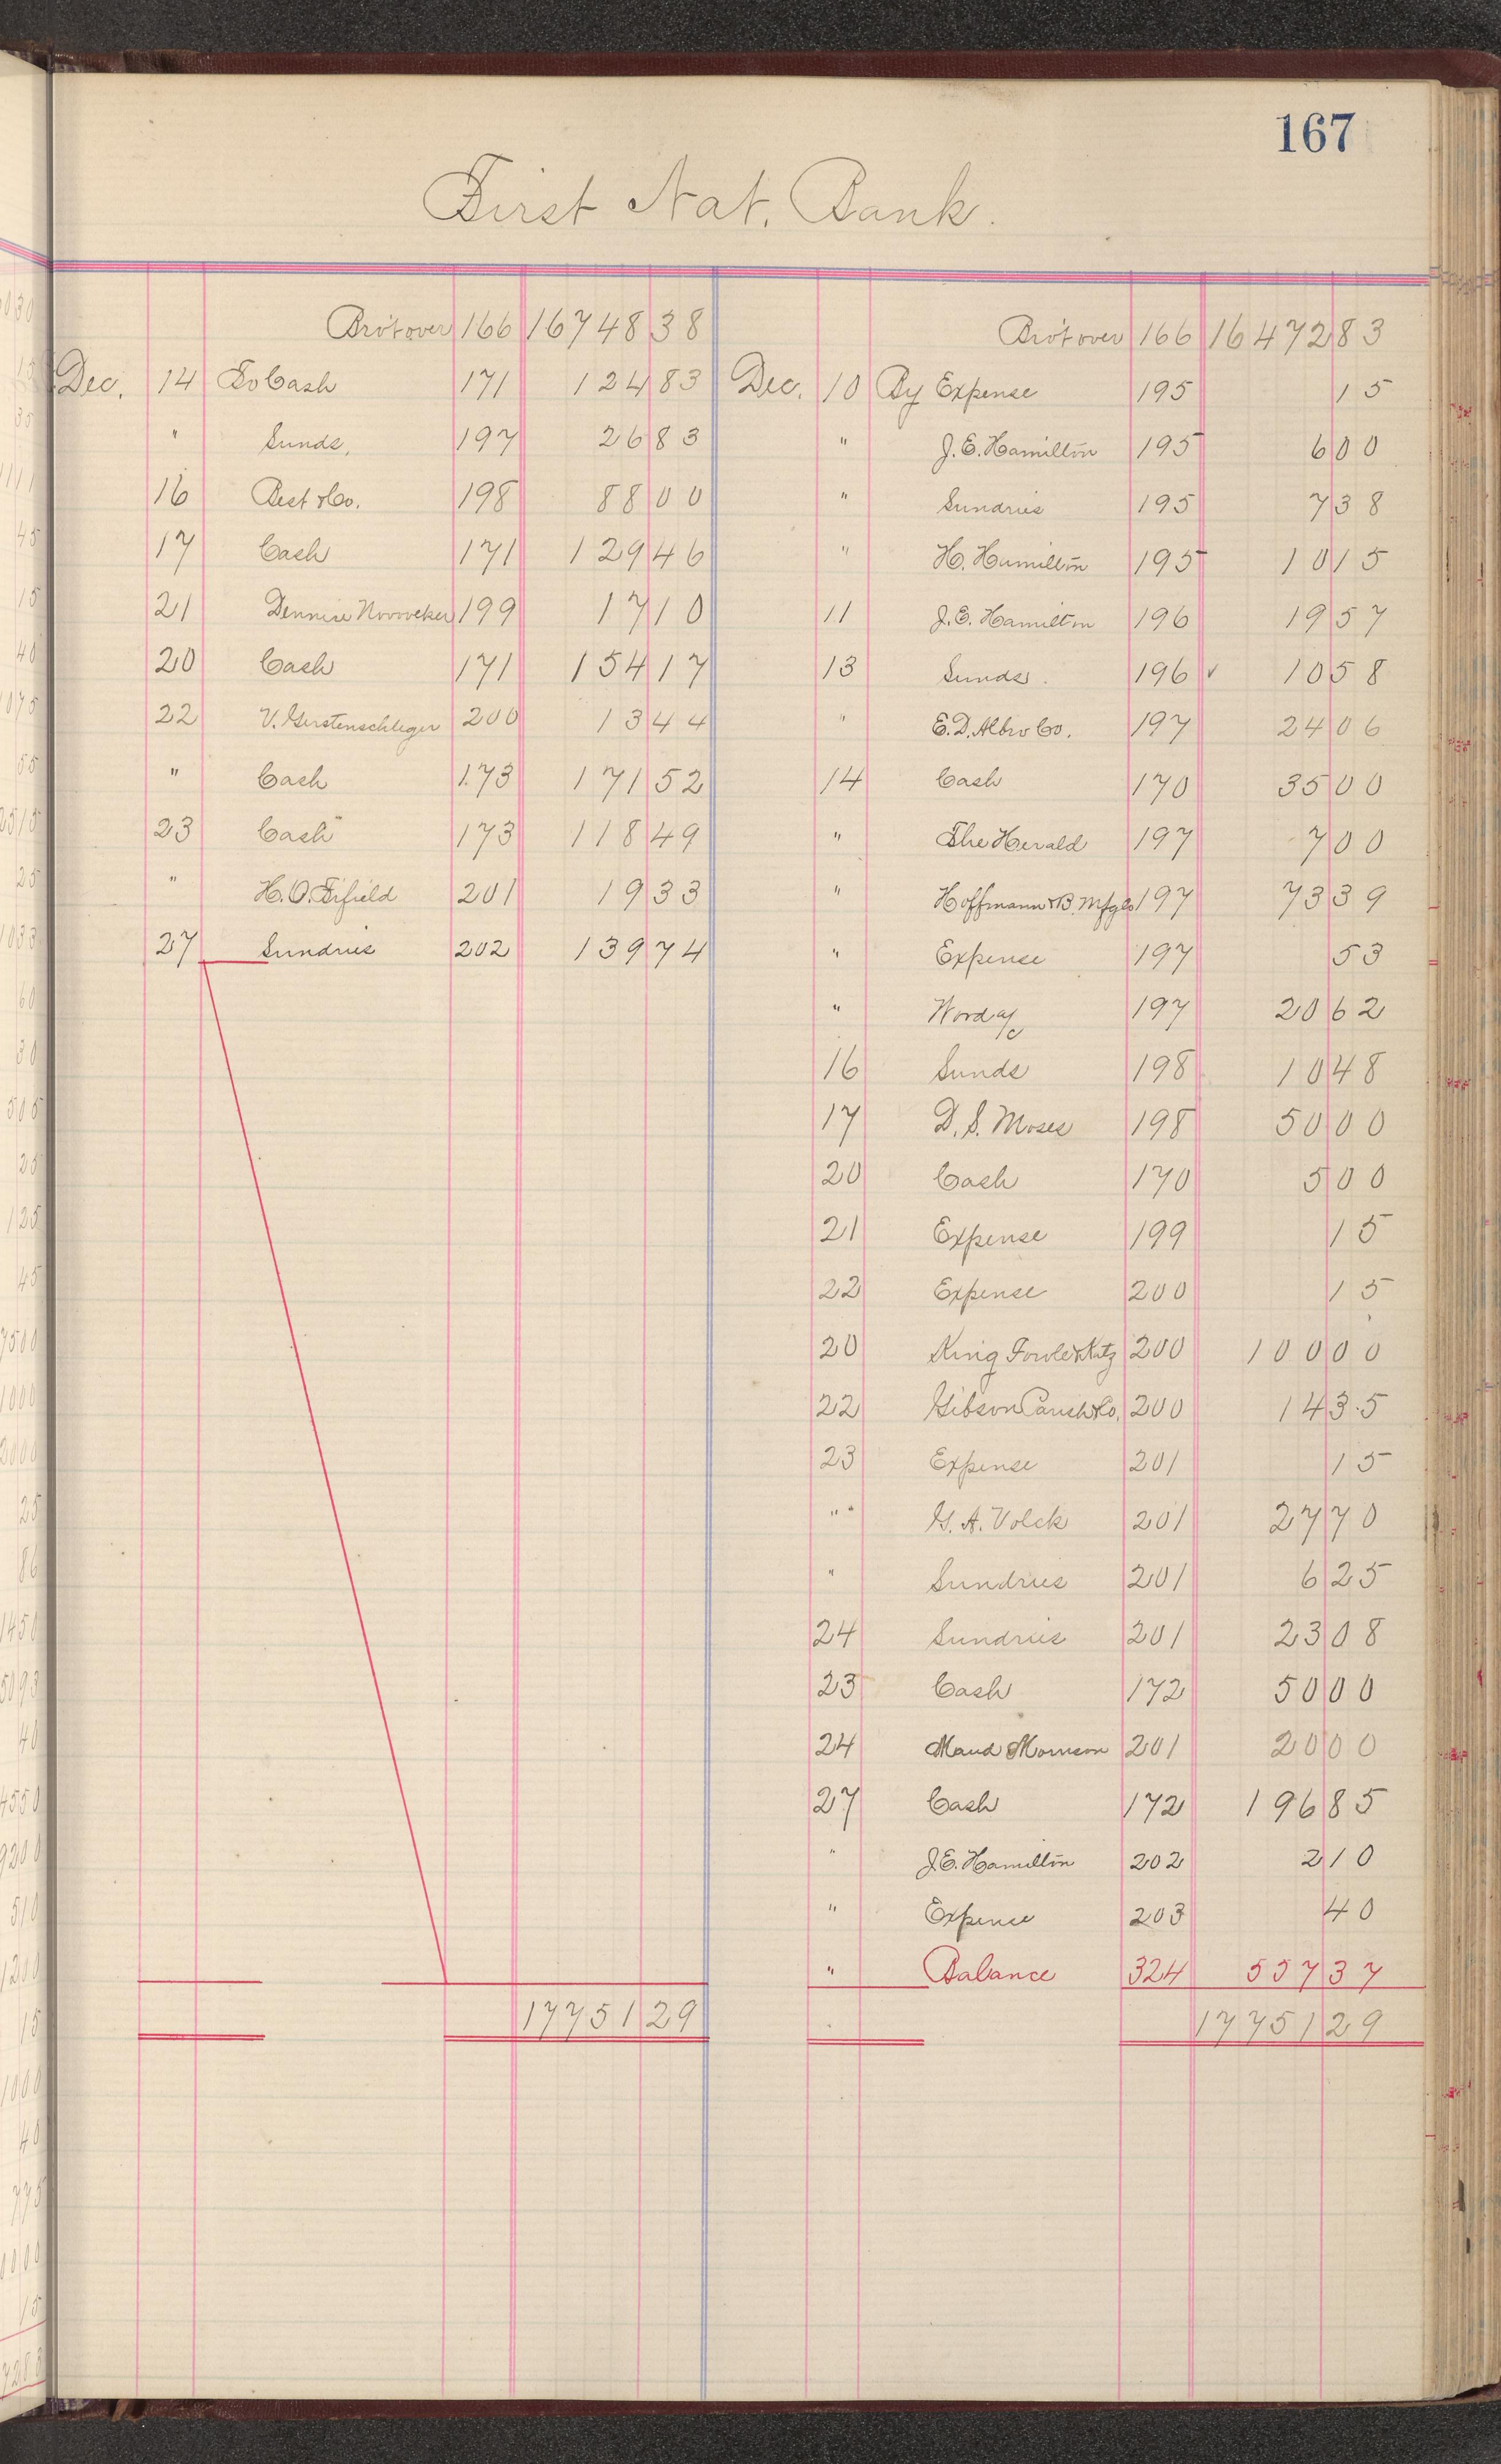 167
First Nat. Bank.
Bro't over 166 16748 38
Dec. 14 To Cash 171 124 83
" Sunds. 197 26 83
16 Best & Co. 198 88 00
17 Cash 171 129 46
21 199 17 10
20 Cash 171 154 17
22 V. Gerstenschleger 200 13 44
" Cash 173 171 52
23 Cash 173 118 49
" H. O. Fifield 201 19 33
27 Sundries 202 139 74
17751 29
Bro't over 166 16472 83
Dec. 10 By Expense 195 15
" J. E. Hamilton 195 6 00
" Sundries 195 7 38
" H. Hamilton 195 10 15
11 J. E. Hamilton 196 19 57
13 Sunds. 196 ✓ 10 58
" E. D. Albro Co. 197 24 06
14 Cash 170 35 00
" The Herald 197 7 00
" Hoffmann & B. Mfg Co 197 73 39
" Expense 197 53
" Word a/c 197 20 62
16 Sunds 198 10 48
17 D. S. Moses 198 50 00
20 Cash 170 5 00
21 Expense 199 15
22 Expense 200 15
20 King Fowle & Katz 200 100 00
22 Gibson Parish & Co. 200 14 35
23 Expense 201 15
" G. A. Volck 201 27 70
" Sundries 201 6 25
24 Sundries 201 23 08
23 Cash 172 50 00
24 Maud Morrison 201 20 00
27 Cash 172 196 85
" J. E. Hamilton 202 2 10
" Expense 203 40
" Balance 324 557 37
17751 29